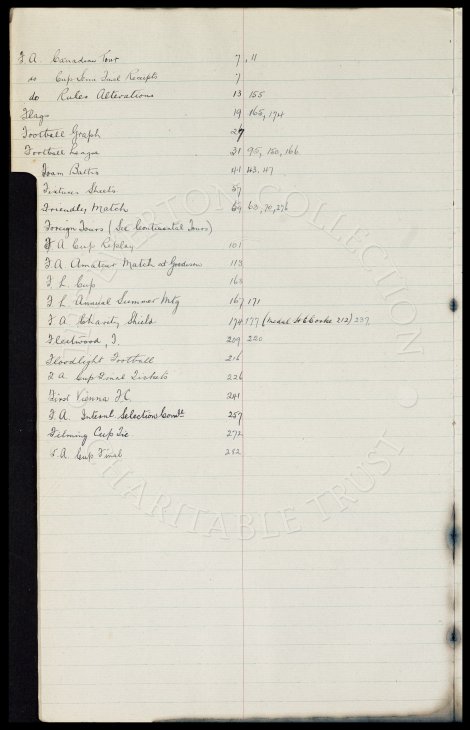 F A Canadian Tour 7, 11
do Cup Semi Final Receipts 7
do Rules Alterations 13 155
Flags 19 165, 174
Football Graph 27
Football League 31 95, 150, 166
Foam Baths 41 43, 47
Fixtures Sheets 57
Friendly Match 69 63, 70, 276
Foreign Tours (See Continental Tours)
F A Cup Replay 101
F.A. Amateur Match at Goodison 113
F L Cup 163
F L Annual Summer Mtg 167 171
F A Charity Shield 174 177 (Medal H C Cooke 212) 237
Fleetwood, T. 209 220
Floodlight Football 216
F A Cup Final Tickets 226
First Vienna F.C. 241
F.A. Internl Selection Comtt 257
Filming Cup Tie 272
F A Cup Final 282
EVERTON COLLECTION
CHARITABLE TRUST